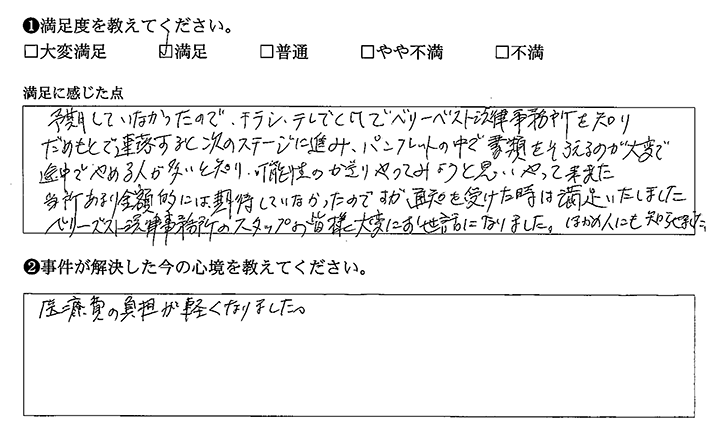 ❶満足度を教えてください。
□大変満足 ☑満足 □普通 □やや不満 □不満
満足に感じた点
予期していなかったので、チラシ、テレビとかでベリーベスト法律事務所を知り
だめもとで連絡すると次のステージに進み、パンフレットの中で書類をそろえるのが大変で
途中でやめる人が多いと知り、可能性のかぎりやってみようと思いやって来ました
当所あまり金額的には期待していなかったのですが通知を受けた時は満足いたしました
ベリーベスト法律事務所のスタッフの皆様大変にお世話になりました。ほかの人にも知らせました
❷事件が解決した今の心境を教えてください。
医療費の負担が軽くなりました。